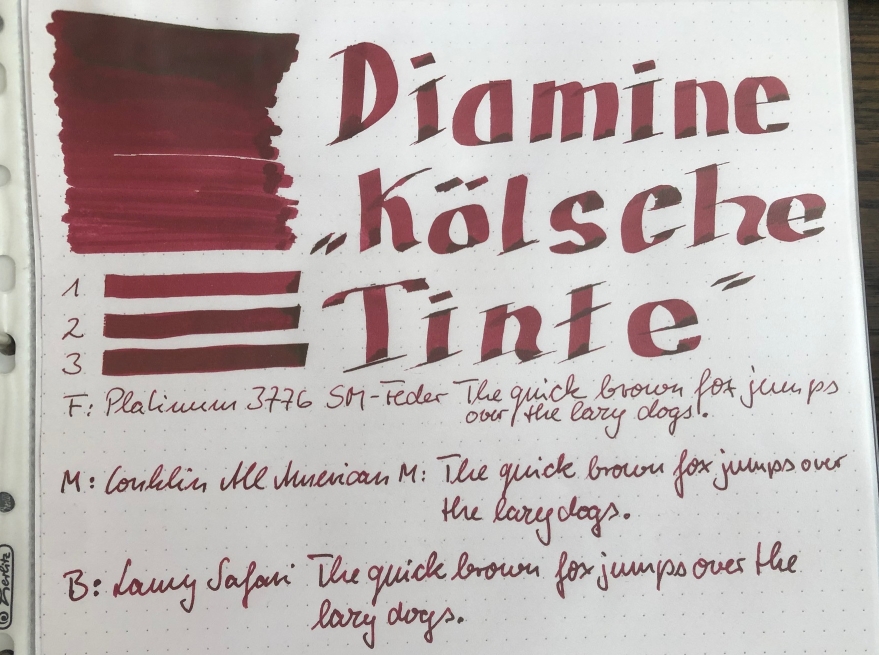 Diamine
„Kölsche
Tinte"
1
2
3
F: Platinum 3776 SM-Feder The quick brown fox jumps
over the lazy dogs.
M: Conklin All American M: The quick brown fox jumps over
the lazy dogs.
B: Lamy Safari The quick brown fox jumps over the
lazy dogs.
© Herlitz